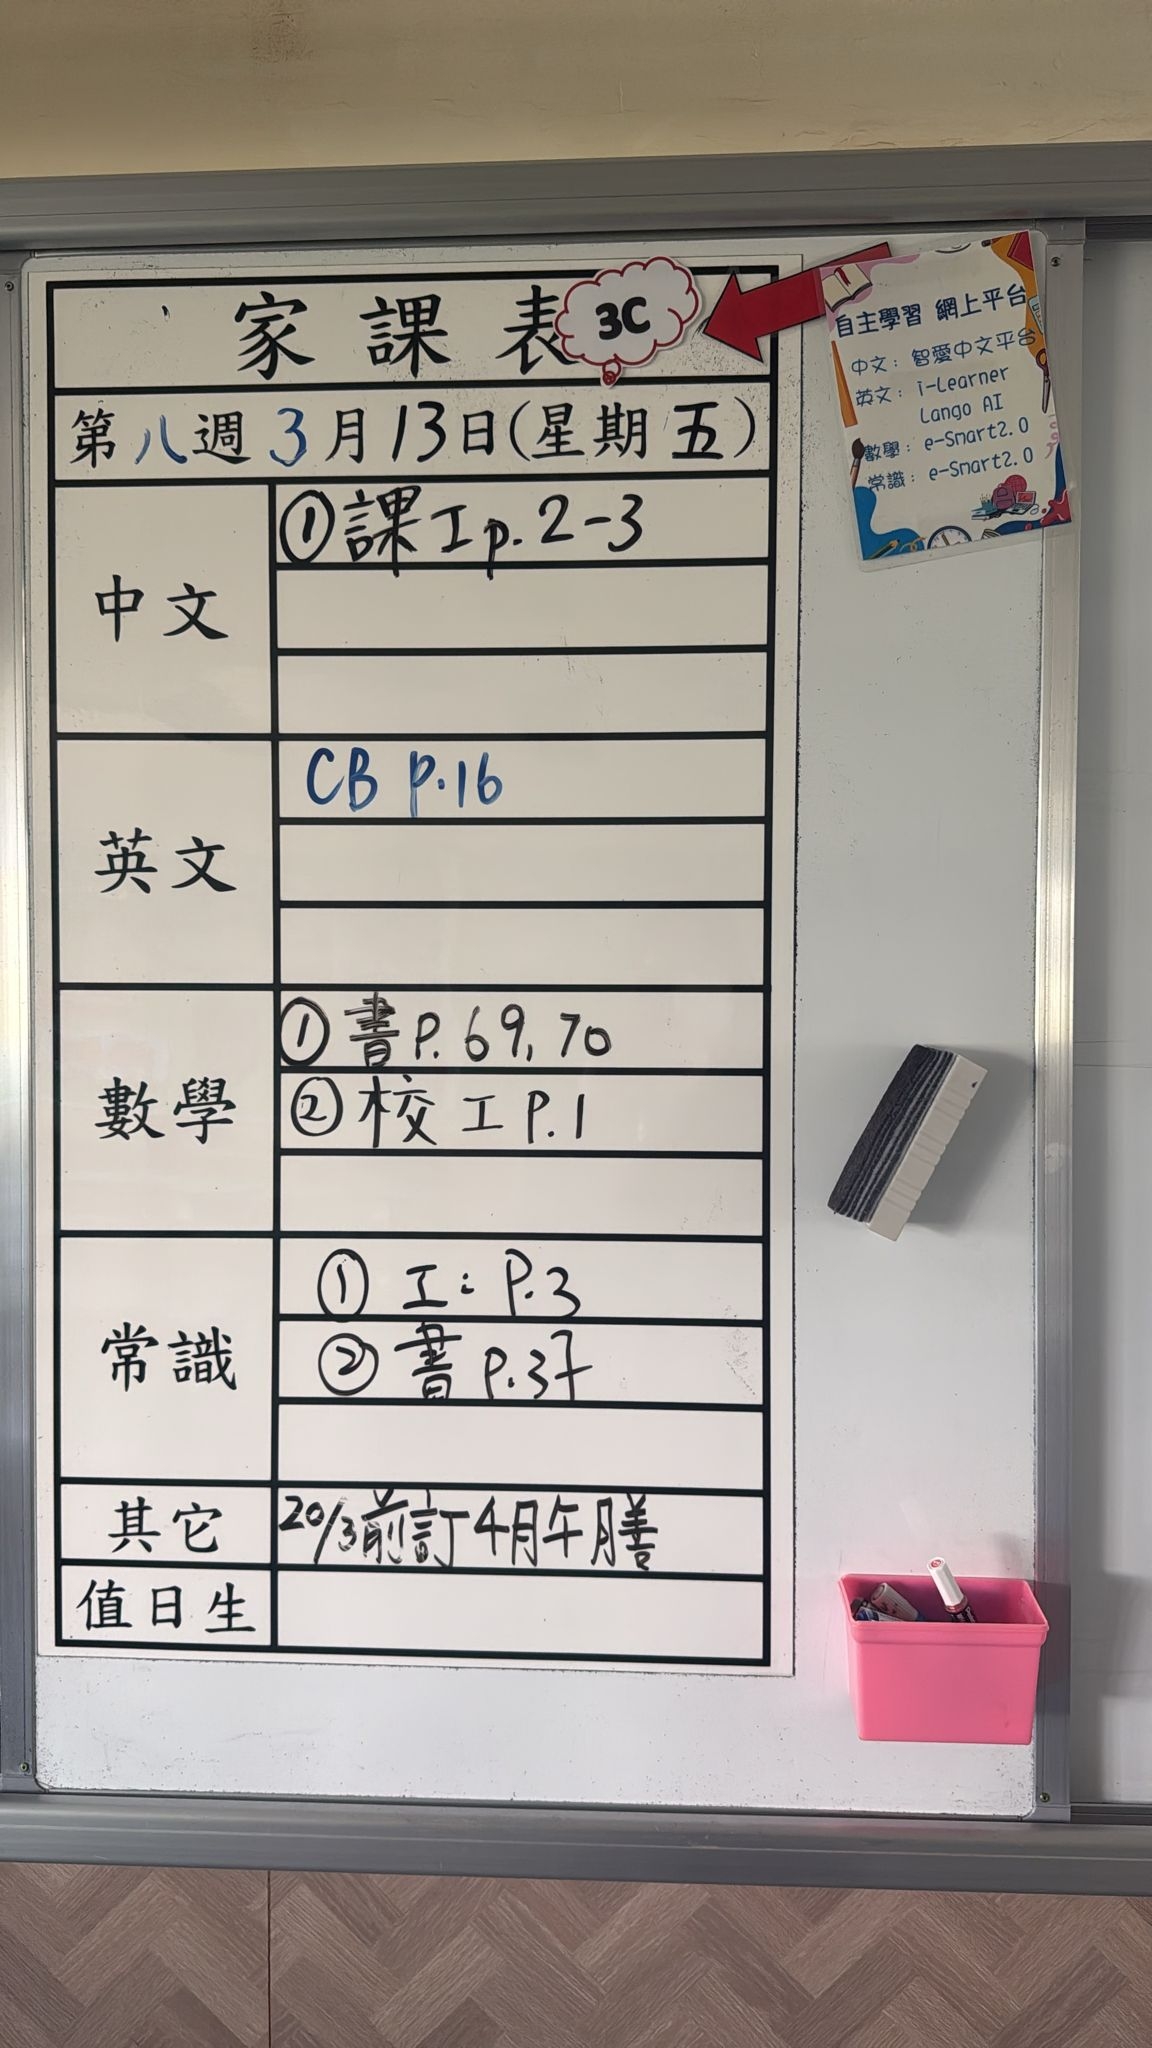 家課表
3C
第八週3月13日(星期五)
中文
①課工p.2-3
英文
CB p.16
數學
①書P.69,70
②校工P.1
常識
①工:P.3
②書p.37
其它
20/3前訂4月午膳
值日生
自主學習 網上平台
中文:智愛中文平台
英文:i-Learner
Lango AI
數學:e-Smart2.0
常識:e-Smart2.0